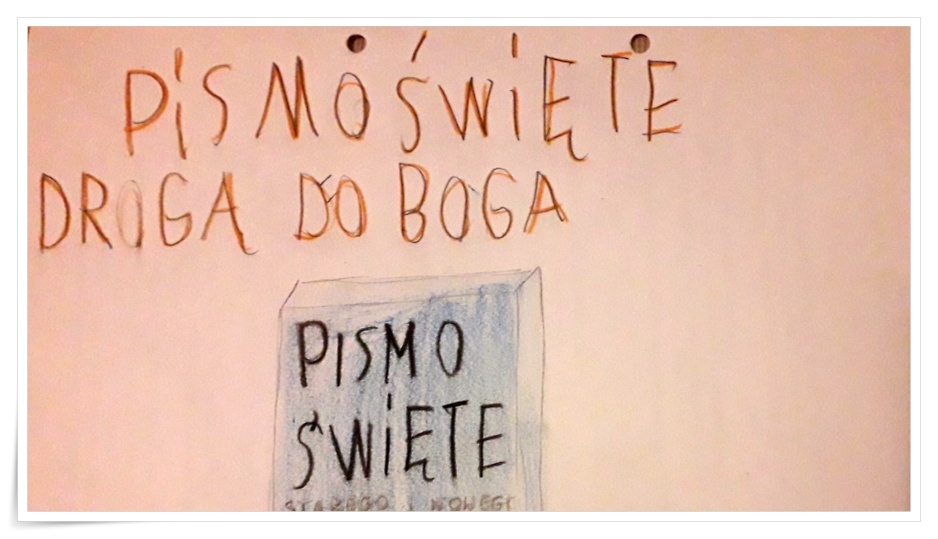 PiSMO ŚWiĘTE
DROGA DO BOGA
PISMO
ŚWiĘTE
STAREGO I NOWEG